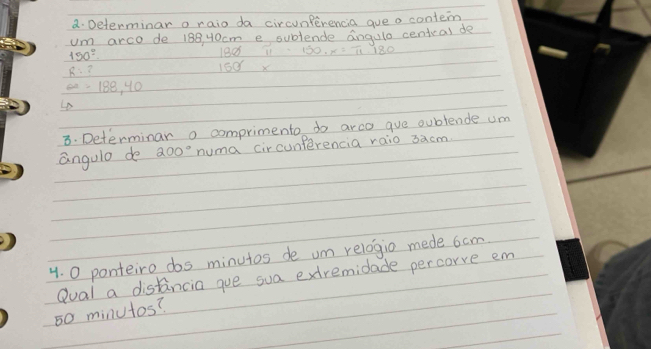 2. Determinar o raio da circunferência que o contém
um arco de 188,40cm e sublende ângulo central de
150°. 180 π 150.x = π 180
R: ? 150 x
= 188,40
3. Determinar o comprimento do arco que sublende um
ângulo de 200° numa circunferencia raio 32cm
4. O ponteiro dos minutos de um relógio mede 6cm.
Qual a distância que sua extremidade percorre em
50 minutos?